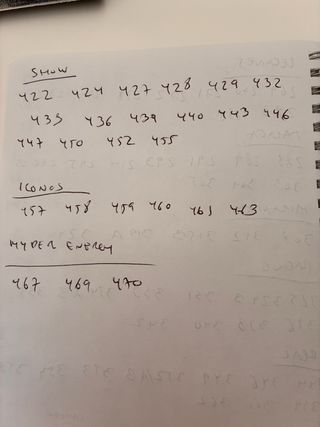 SHOW
422 424 427 428 429 432
433 436 439 440 443 446
447 450 452 455
ICONOS
457 458 459 460 461 463
HYPER ENERGY
467 469 470